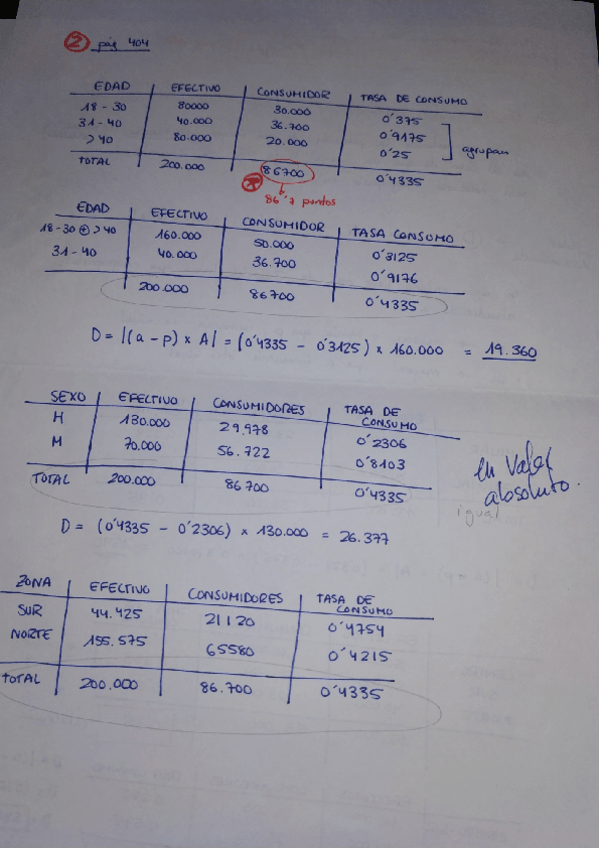 ② pág 404
EDAD EFECTIVO CONSUMIDOR TASA DE CONSUMO
18 - 30 80000 30.000 0'375
31 - 40 40.000 36.700 0'9175
> 40 80.000 20.000 0'25
agrupan
TOTAL 200.000 86700 0'4335
86'7 puntos
EDAD EFECTIVO CONSUMIDOR TASA CONSUMO
18-30 ⊕ > 40 160.000 50.000 0'3125
31 - 40 40.000 36.700 0'9176
200.000 86700 0'4335
D = |(a - p) × A| = (0'4335 - 0'3125) × 160.000 = 19.360
SEXO EFECTIVO CONSUMIDORES TASA DE CONSUMO
H 130.000 29,978 0'2306
M 70.000 56.722 0'8103
TOTAL 200.000 86700 0'4335
en valor
absoluto.
igual
D = (0'4335 - 0'2306) × 130.000 = 26.377
ZONA EFECTIVO CONSUMIDORES TASA DE CONSUMO
SUR 44.425 21120 0'4754
NORTE 155.575 65580 0'4215
TOTAL 200.000 86.700 0'4335